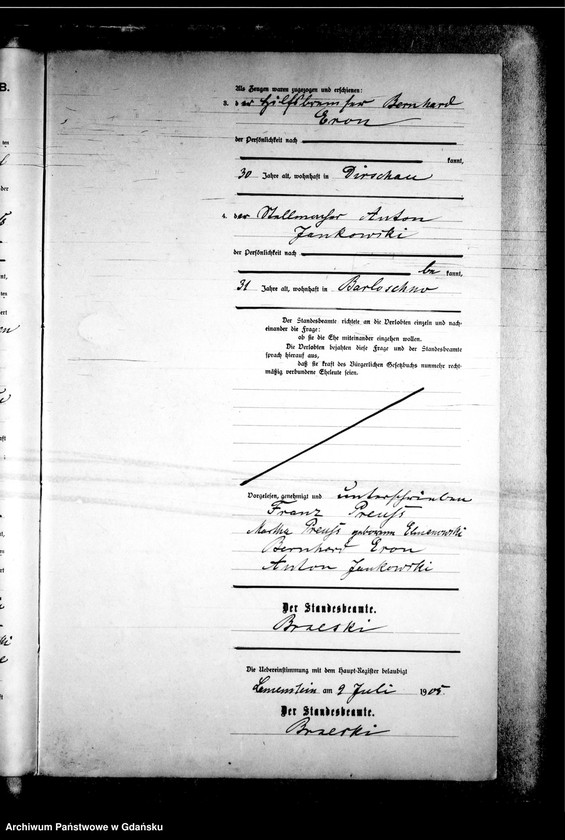 B.
Als Zeugen waren zugezogen und erschienen:
3. der Hilfsbremser Bernhard
Eron
der Persönlichkeit nach
kannt,
30 Jahre alt, wohnhaft in Dirschau
4. der Stellmacher Anton
Jankowski
der Persönlichkeit nach
be kannt,
31 Jahre alt, wohnhaft in Barloschno
Der Standesbeamte richtete an die Verlobten einzeln und nach-
einander die Frage:
ob sie die Ehe miteinander eingehen wollen.
Die Verlobten bejahten diese Frage und der Standesbeamte
sprach hierauf aus,
daß sie kraft des Bürgerlichen Gesetzbuchs nunmehr recht-
mäßig verbundene Eheleute seien.
Vorgelesen, genehmigt und unterschrieben
Franz Preuß
Martha Preuß geborene
Bernhard Eron
Anton Jankowski
Der Standesbeamte.
Braeski
Die Uebereinstimmung mit dem Haupt-Register beglaubigt
am 9 Juli 1905.
Der Standesbeamte.
Braeski
Archiwum Państwowe w Gdańsku